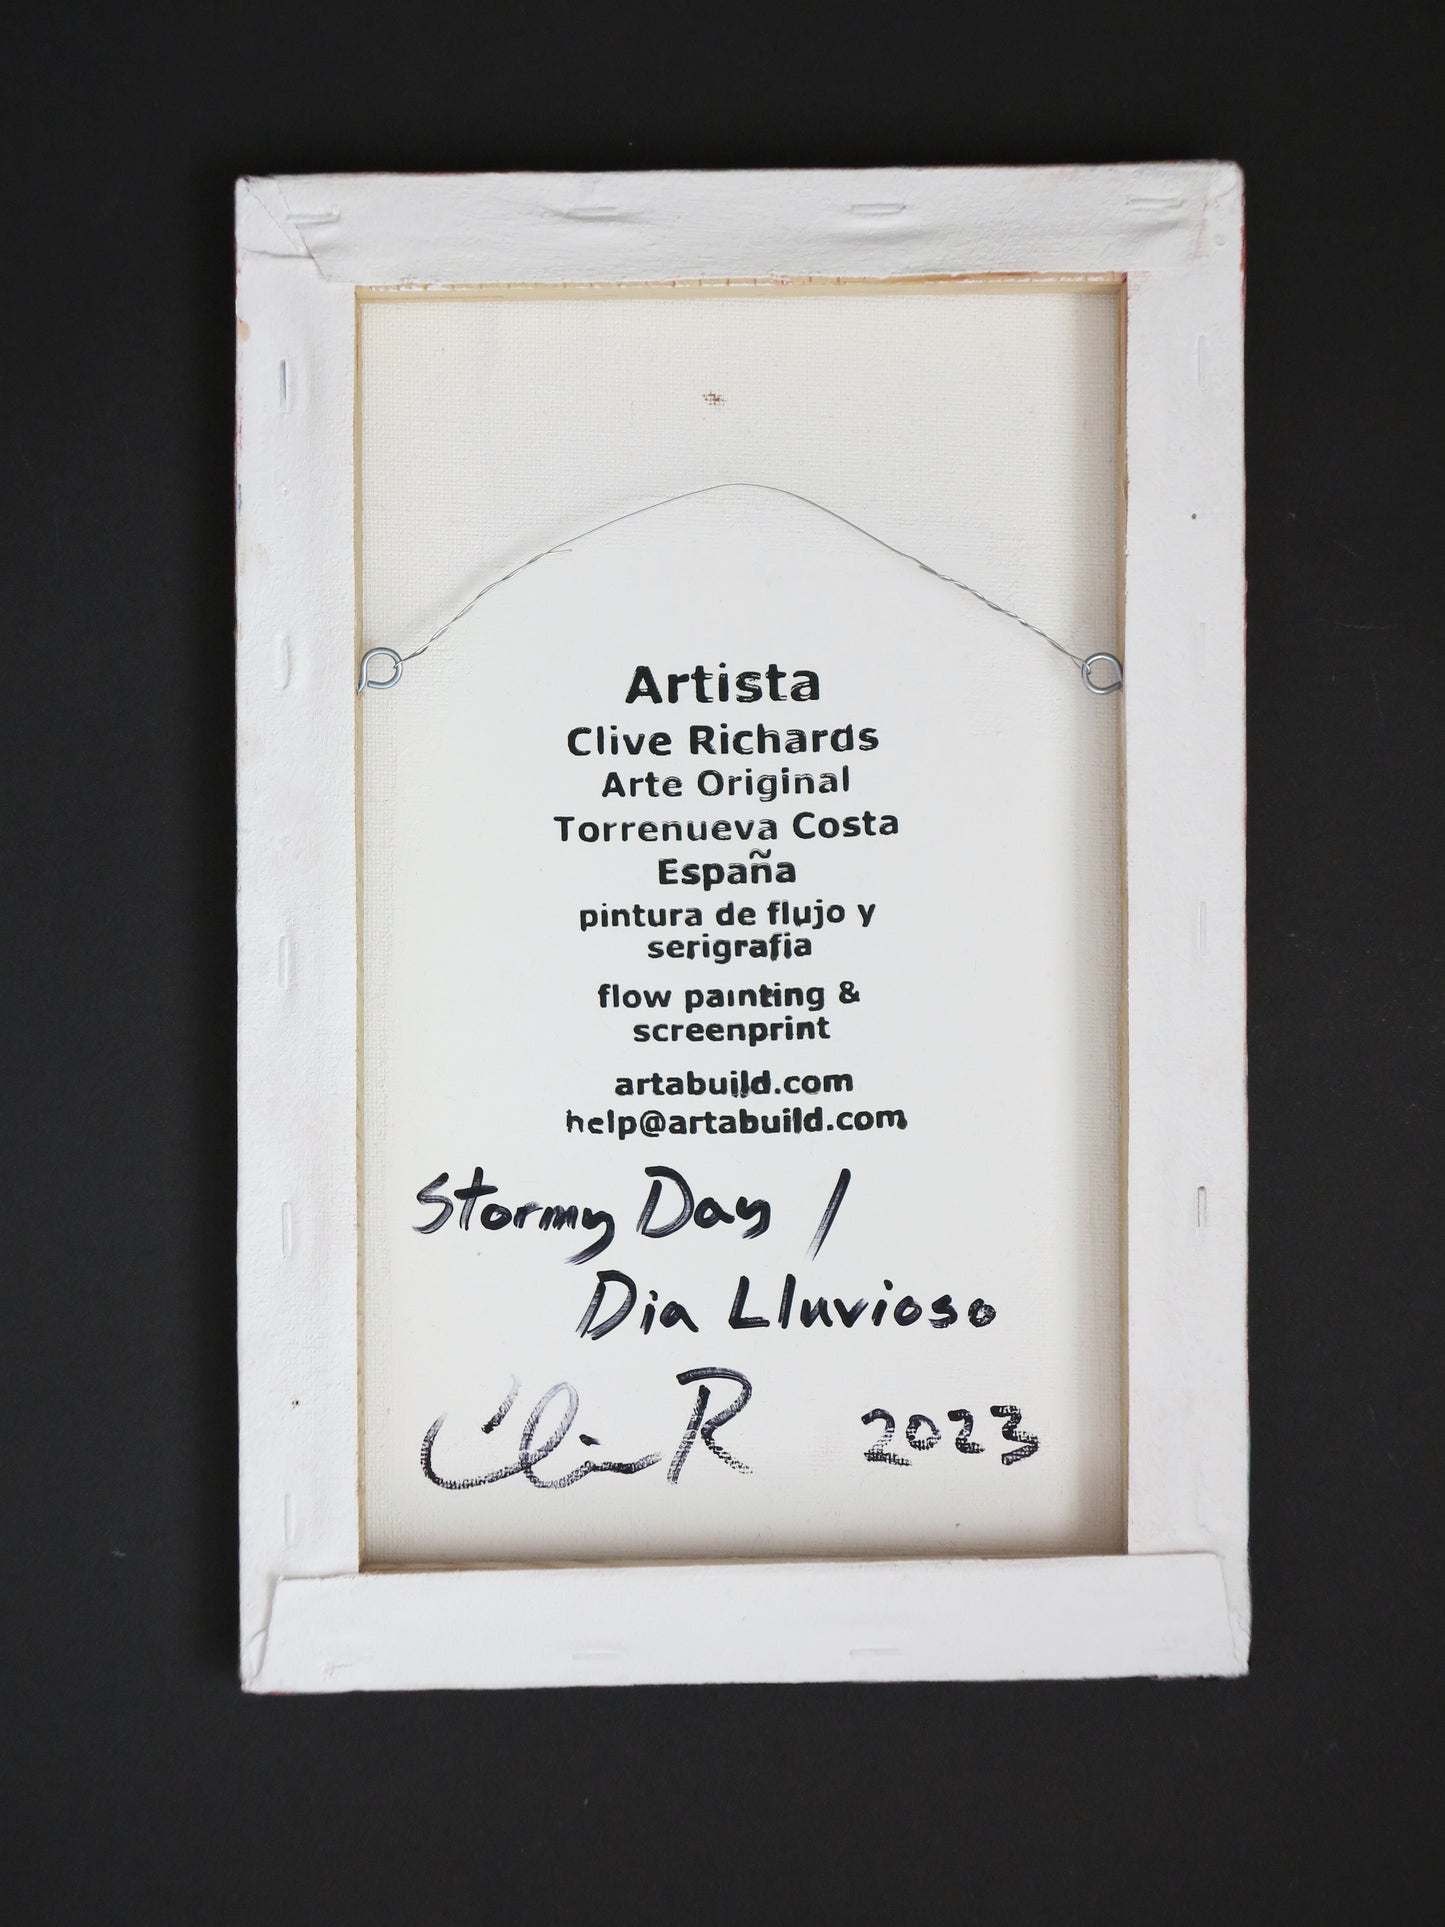 Artista
Clive Richards
Arte Original
Torrenueva Costa
España
pintura de flujo y
serigrafia
flow painting &
screenprint
artabuild.com
help@artabuild.com
Stormy Day /
Dia Lluvioso
Clive R 2023